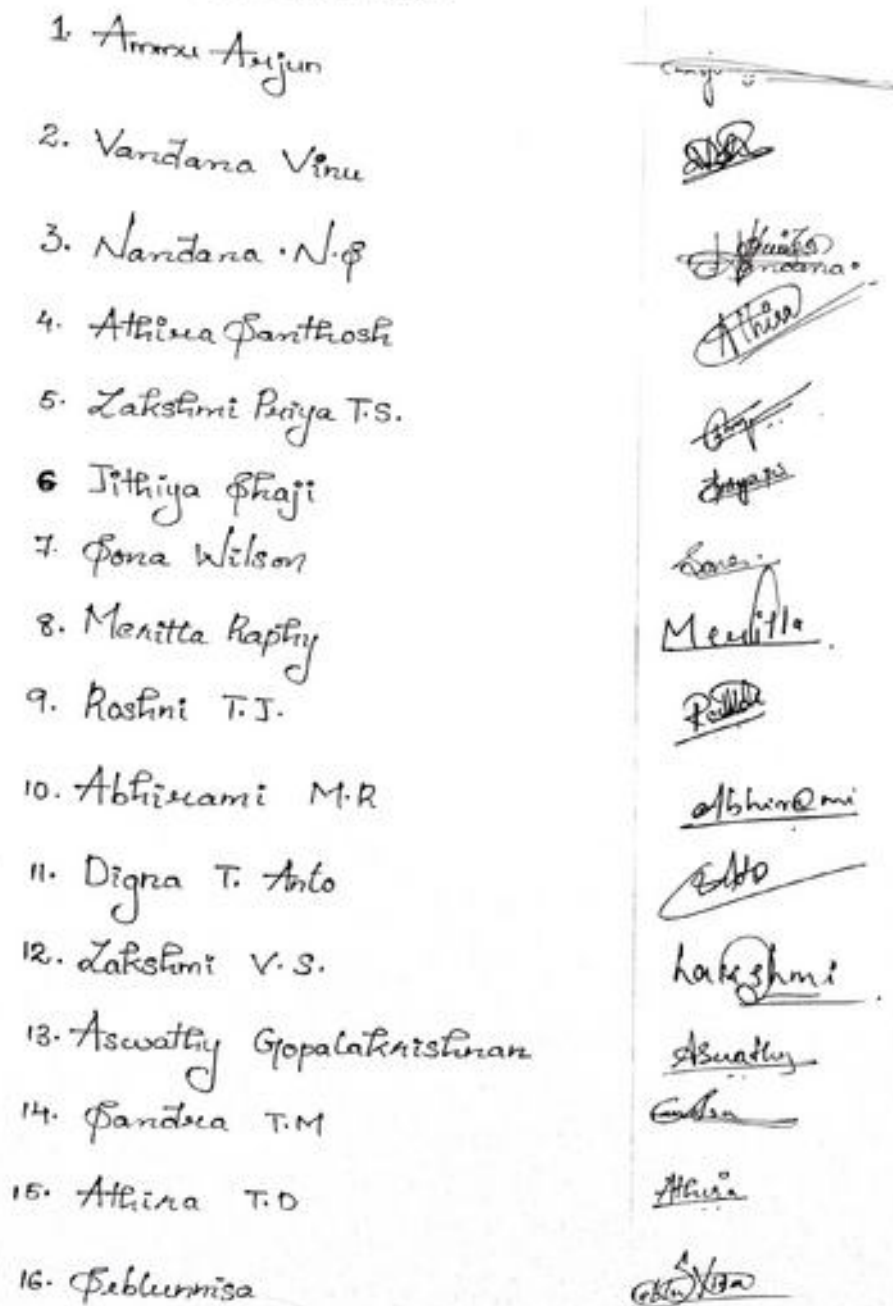 1. Ammu Arjun
2. Vandana Vinu
3. Nandana . N.S Nandana.
4. Athira Santhosh Athira
5. Lakshmi Priya T.S.
6 Jithiya Shaji
7. Sona Wilson Sona.
8. Meritta Raphy Meritta
9. Roshni T.J.
10. Abhirami M.R Abhirami
11. Digna T. Anto
12. Lakshmi V.S. Lakshmi
13. Aswathy Gopalakrishnan Aswathy
14. Sandra T.M
15. Athira T.D Athira
16. Seblunnisa